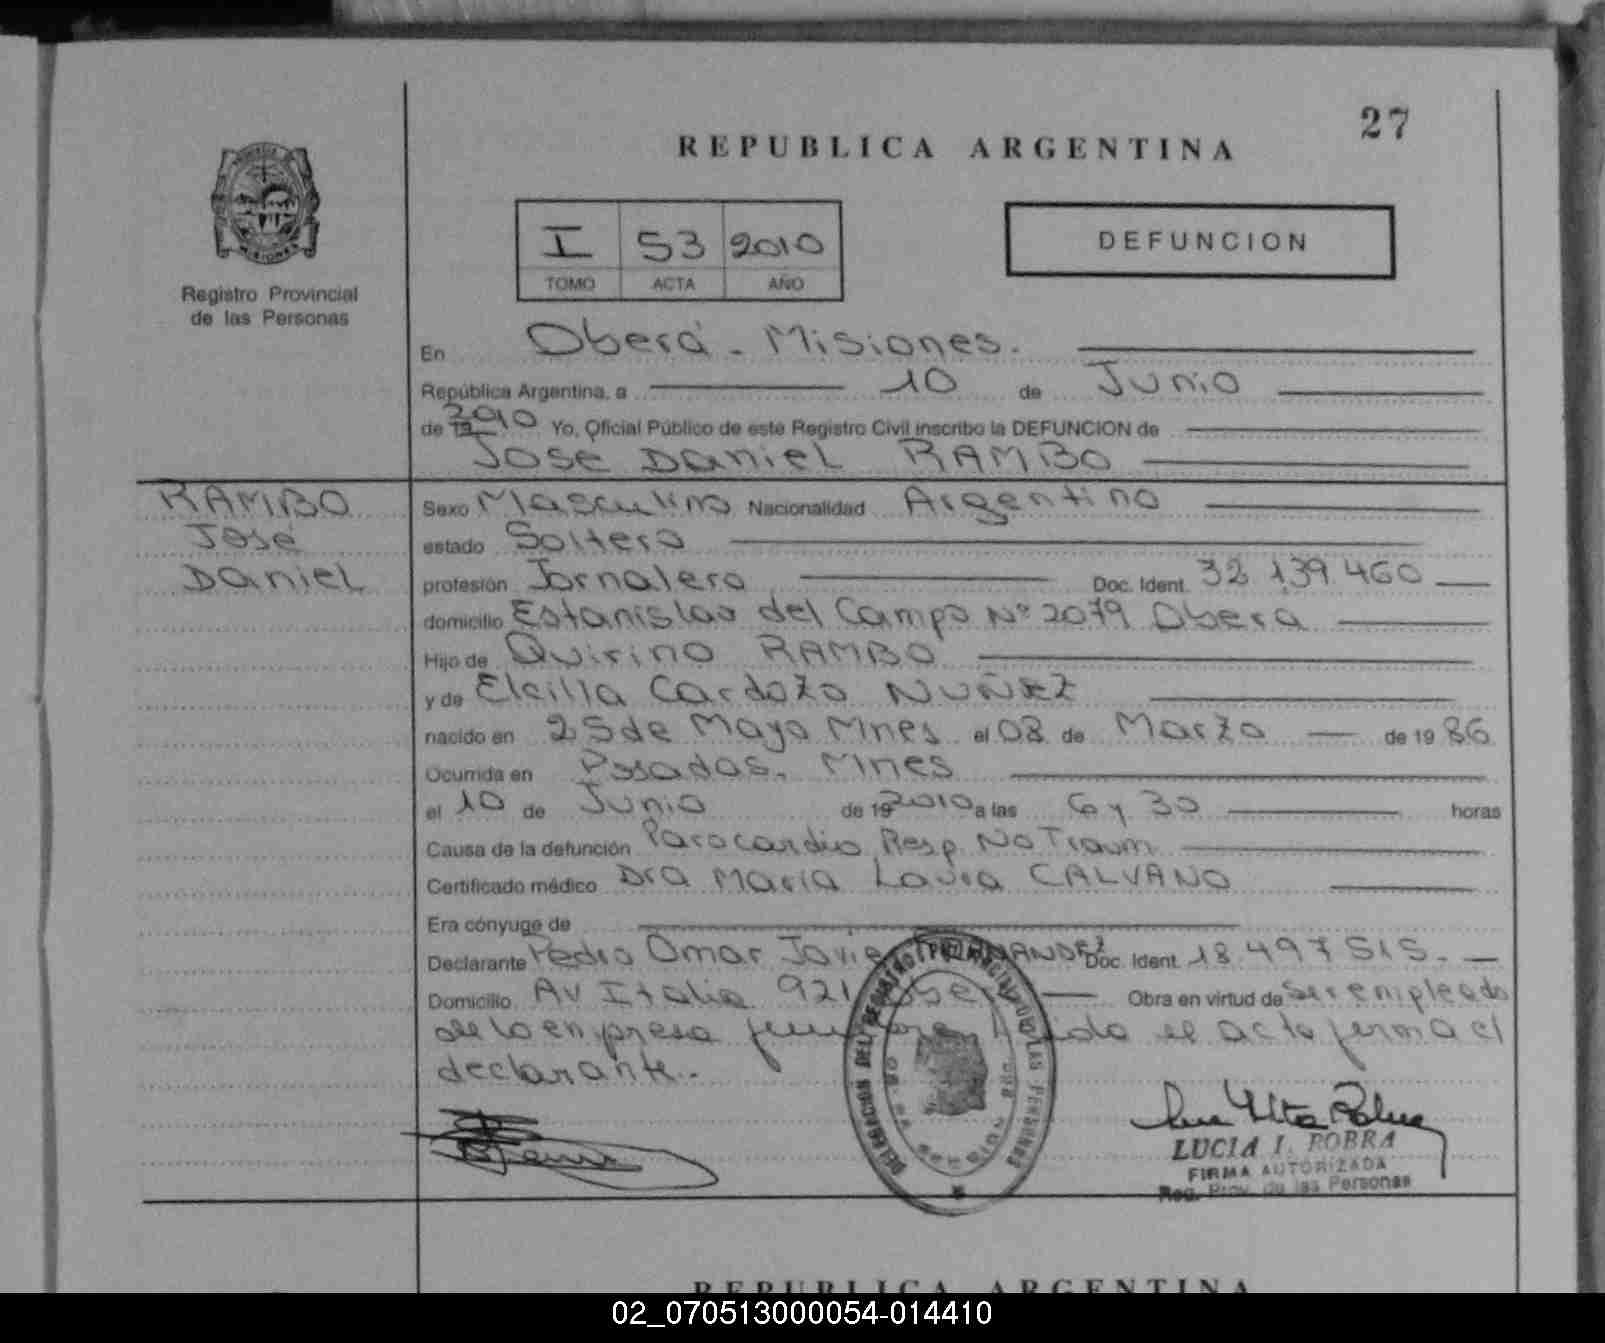 27
REPUBLICA ARGENTINA
I 53 2010
TOMO ACTA AÑO
DEFUNCION
PROVINCIA DE MISIONES
Registro Provincial
de las Personas
En Oberá - Misiones.
República Argentina, a 10 de Junio
de 19 2010 Yo, Oficial Público de este Registro Civil inscribo la DEFUNCION de
Jose Daniel RAMBO
RAMBO
José
Daniel
Sexo Masculino Nacionalidad Argentino
estado Soltero
profesión Jornalero Doc. Ident. 32.139.460
domicilio Estanislao del Campo Nº 2079 Obera
Hijo de Quirino RAMBO
y de Elcilia Cardozo NUÑEZ
nacido en 25 de Mayo Mnes el 08 de Marzo de 1986
Ocurrida en Posadas. Mnes
el 10 de Junio de 19 2010 a las 6 y 30 horas
Causa de la defunción Parocardio Resp. No Traum
Certificado médico Dra Maria Laura CALVANO
Era cónyuge de
Declarante Pedro Omar Javier FERNANDEZ Doc. Ident. 18.497.515.
Domicilio Av Italia 921 Obra en virtud de ser empleado
de la empresa el acto firma el
declarante.
DELEGACION DEL REGISTRO PROVINCIAL DE LAS PERSONAS
LUCIA I. ROBRA
FIRMA AUTORIZADA
Reg. Prov. de las Personas
REPUBLICA ARGENTINA
02_070513000054-014410